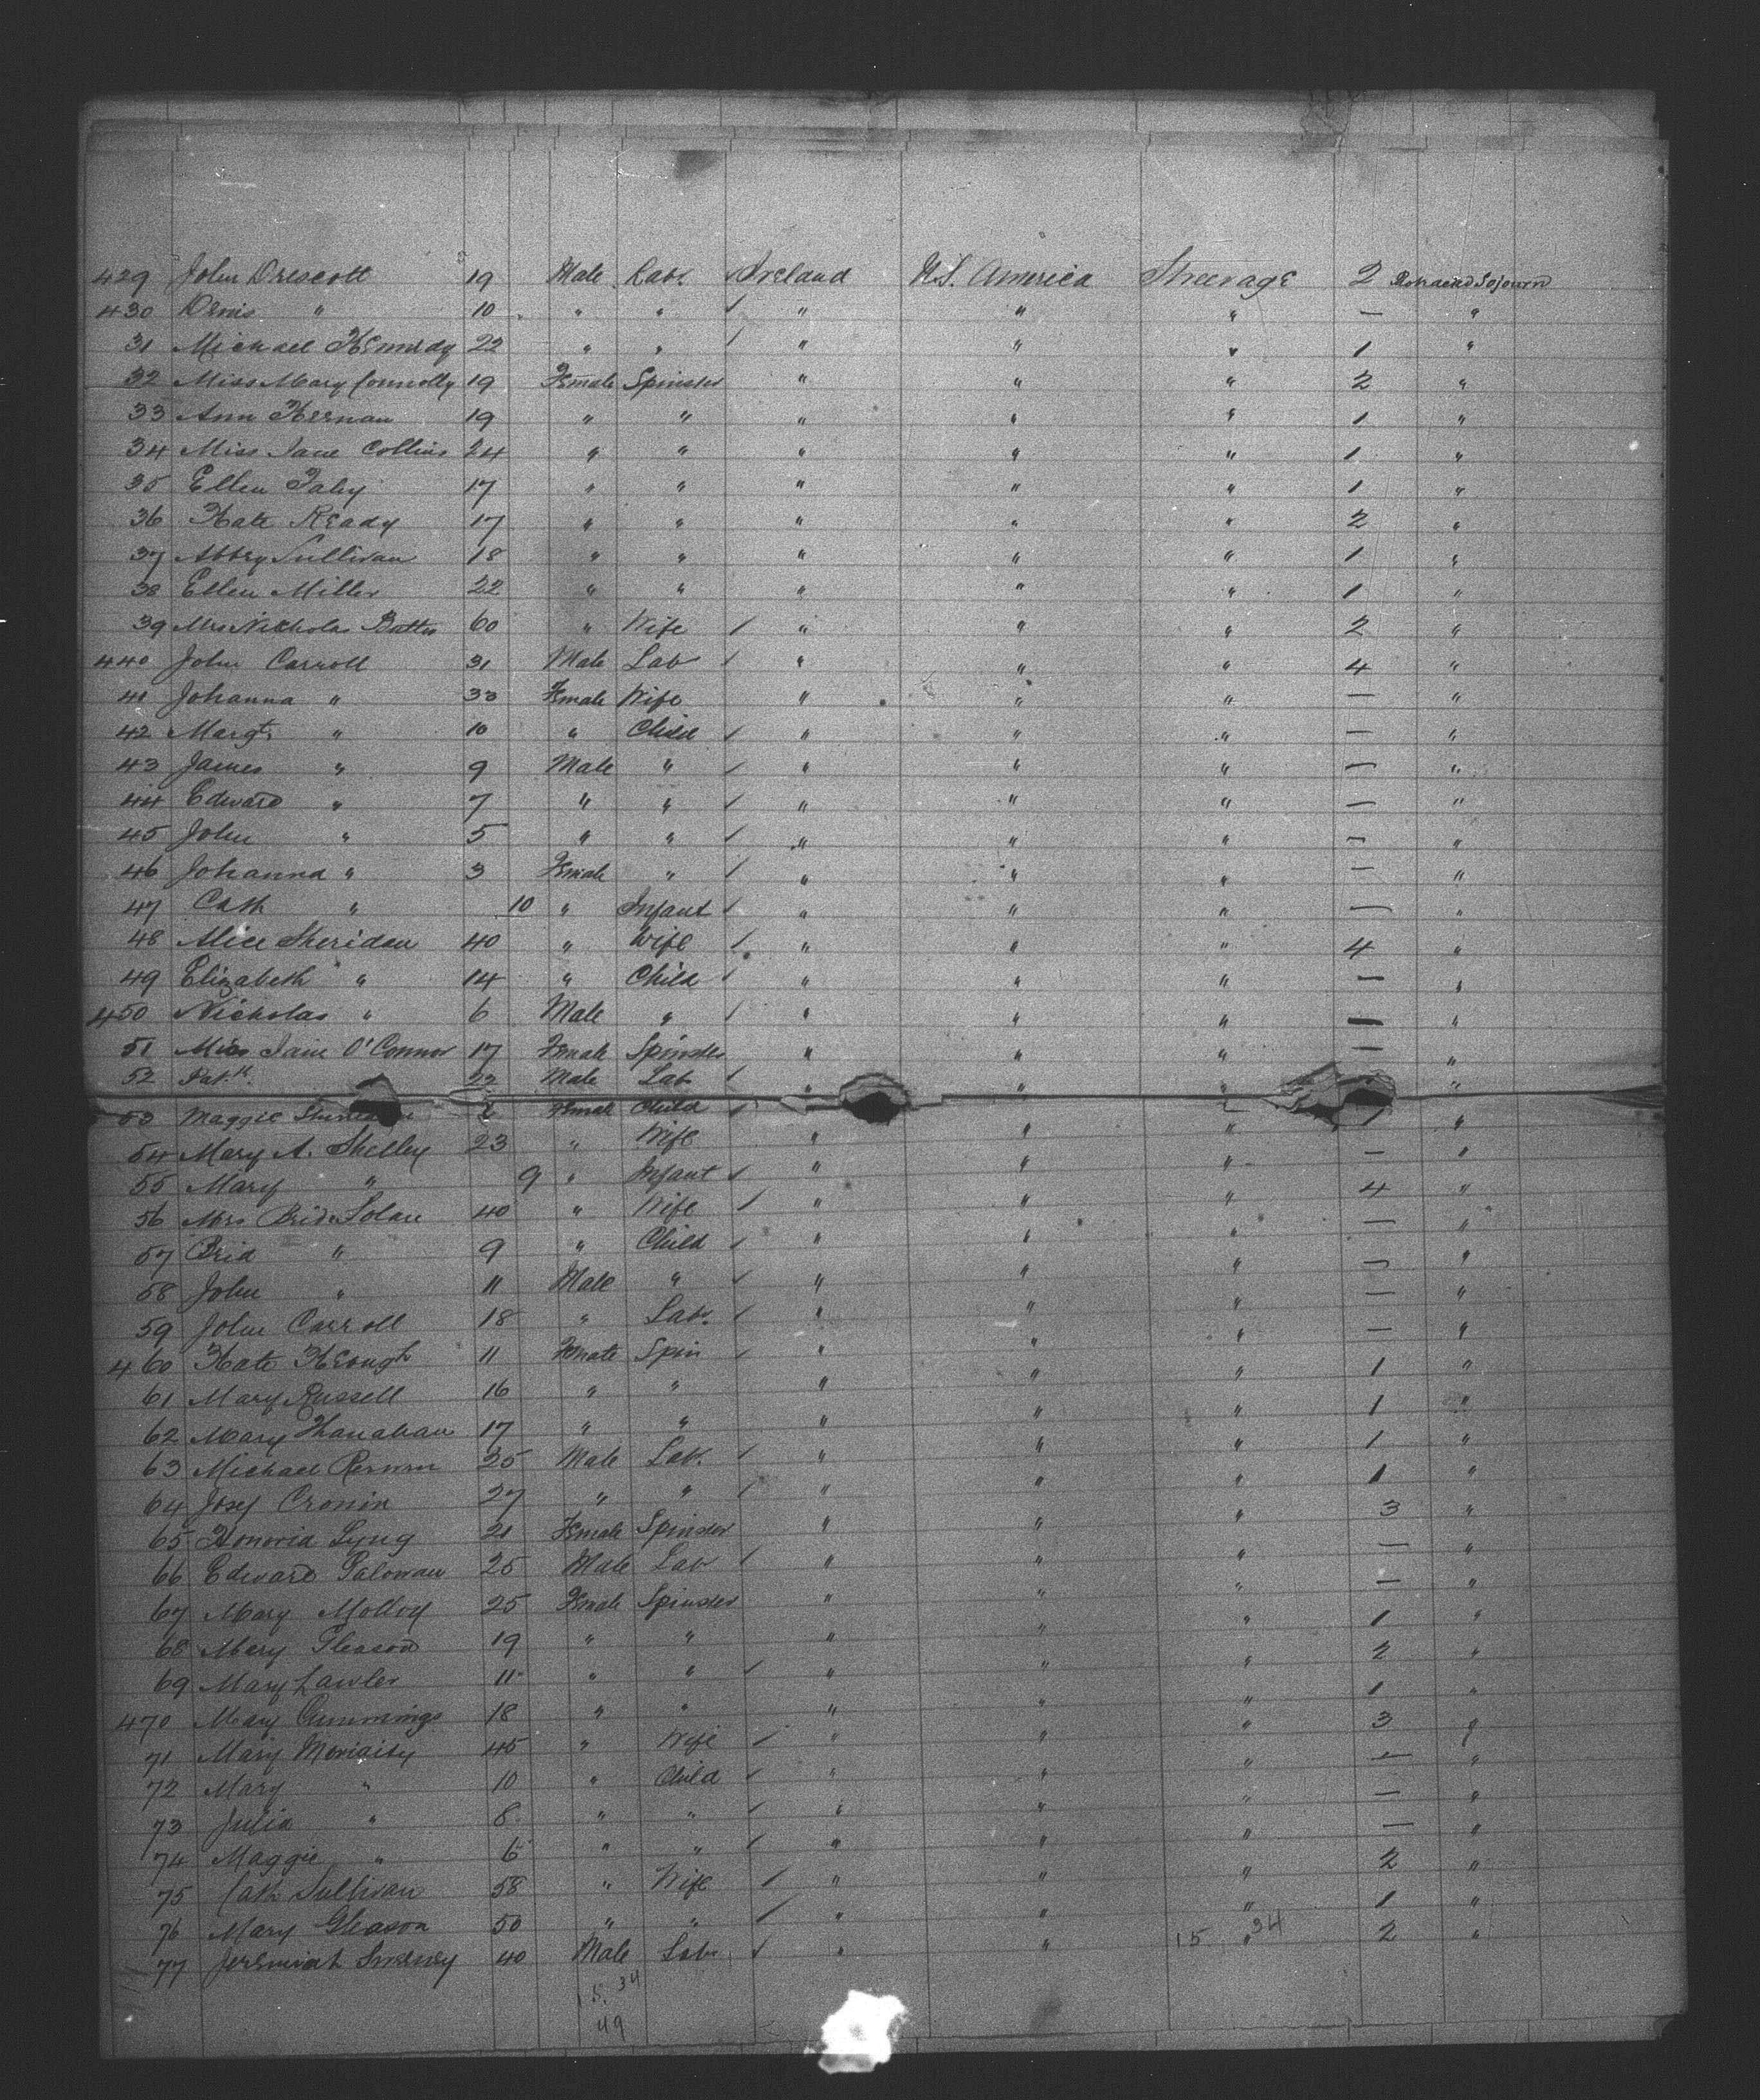 429 John Drescott 19 Male Labr. ✓ Ireland U.S. America Steerage 2 Protracted Sojourn
430 Denis " 10 " " ✓ " " " — "
31 Michael Kennedy 22 " " ✓ " " " 1 "
32 Miss Mary Connolly 19 Female Spinster " " " 2 "
33 Ann Kernan 19 " " " " " 1 "
34 Miss Jane Collins 24 " " " " " 1 "
35 Ellen Fahy 17 " " " " " 1 "
36 Kate Ready 17 " " " " " 2 "
37 Abbey Sullivan 18 " " " " " 1 "
38 Ellen Miller 22 " " " " " 1 "
39 Mrs Nicholas 60 " Wife ✓ " " " 2 "
440 John Carroll 31 Male Lab ✓ " " " 4 "
41 Johanna " 33 Female Wife " " " — "
42 Margt. " 10 " Child ✓ " " " — "
43 James " 9 Male " ✓ " " " — "
44 Edward " 7 " " ✓ " " " — "
45 John " 5 " " ✓ " " " — "
46 Johanna " 3 Female " ✓ " " " — "
47 Cath " 10 " Infant ✓ " " " — "
48 Alice Sheridan 40 " Wife ✓ " " " 4 "
49 Elizabeth " 14 " Child ✓ " " " — "
450 Nicholas " 6 Male " ✓ " " " — "
51 Miss Jane O'Connor 17 Female Spinster " " " — "
52 Patk. 22 Male Lab ✓ " " " "
53 Maggie Female Child ✓ " 1 "
54 Mary A. Shelley 23 " Wife " " " — "
55 Mary " 9 " Infant ✓ " " " 4 "
56 Mrs Brid Solan 40 " Wife ✓ " " " — "
57 Brid " 9 " Child ✓ " " " — "
58 John " 11 Male " ✓ " " " — "
59 John Carroll 18 " Labr. ✓ " " " — "
460 Kate Keough 11 Female Spin ✓ " " " 1 "
61 Mary Russell 16 " " " " " 1 "
62 Mary Shanahan 17 " " " " " 1 "
63 Michael 25 Male Lab. ✓ " " " 1 "
64 Josef Cronin 27 " " ✓ " " " 3 "
65 Honoria Lyng 21 Female Spinster " " " — "
66 Edward 25 Male Lab ✓ " " " — "
67 Mary Molloy 25 Female Spinster " " " 1 "
68 Mary Gleason 19 " " " " " 2 "
69 Mary Lawler 11 " " ✓ " " " 1 "
470 Mary Cummings 18 " " " " " 3 "
71 Mary Moriaity 45 " Wife ✓ " " " — "
72 Mary " 10 " Child ✓ " " " — "
73 Julia " 8 " " ✓ " " " — "
74 Maggie " 6 " " ✓ " " " 2 "
75 Cath Sullivan 58 " Wife ✓ " " " 1 "
76 Mary Gleason 50 " " ✓ " " " 2 "
77 Jeremiah Sweeney 40 Male Labr. ✓ " " 15 34
15. 34
49